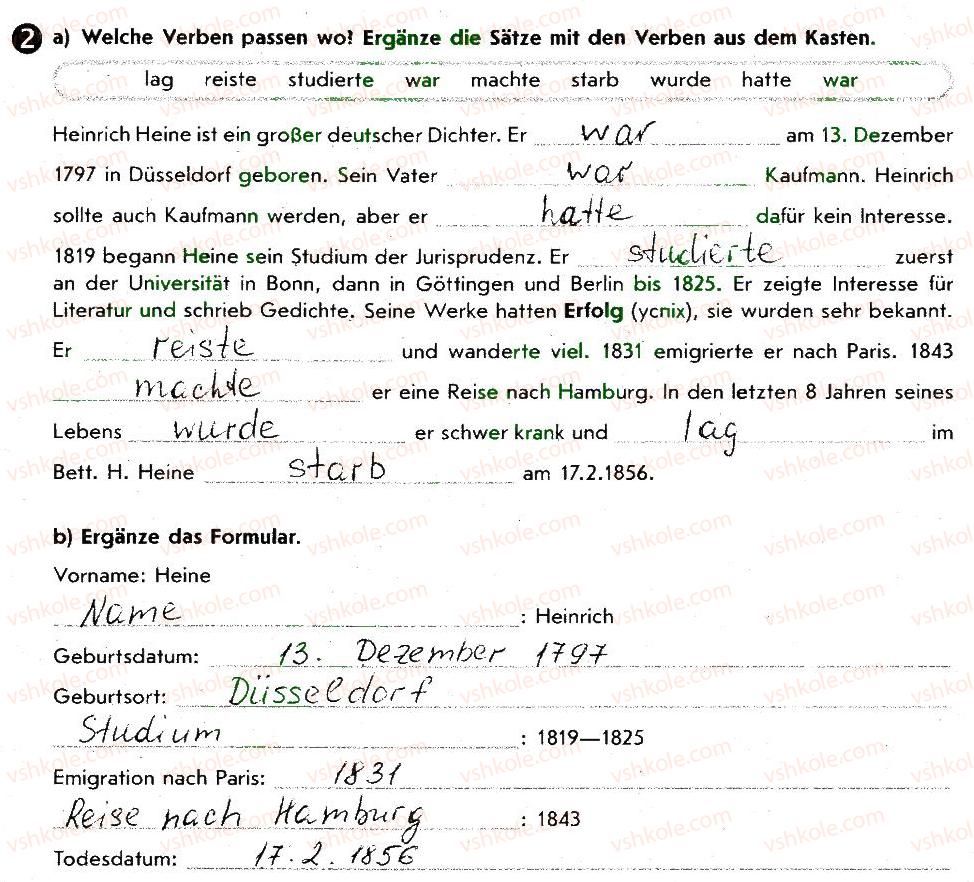 2 a) Welche Verben passen wo? Ergänze die Sätze mit den Verben aus dem Kasten.
lag reiste studierte war machte starb wurde hatte war
Heinrich Heine ist ein großer deutscher Dichter. Er war am 13. Dezember
1797 in Düsseldorf geboren. Sein Vater war Kaufmann. Heinrich
sollte auch Kaufmann werden, aber er hatte dafür kein Interesse.
1819 begann Heine sein Studium der Jurisprudenz. Er studierte zuerst
an der Universität in Bonn, dann in Göttingen und Berlin bis 1825. Er zeigte Interesse für
Literatur und schrieb Gedichte. Seine Werke hatten Erfolg (успіх), sie wurden sehr bekannt.
Er reiste und wanderte viel. 1831 emigrierte er nach Paris. 1843
machte er eine Reise nach Hamburg. In den letzten 8 Jahren seines
Lebens wurde er schwer krank und lag im
Bett. H. Heine starb am 17.2.1856.
b) Ergänze das Formular.
Vorname: Heine
Name : Heinrich
Geburtsdatum: 13. Dezember 1797
Geburtsort: Düsseldorf
Studium : 1819—1825
Emigration nach Paris: 1831
Reise nach Hamburg : 1843
Todesdatum: 17.2.1856